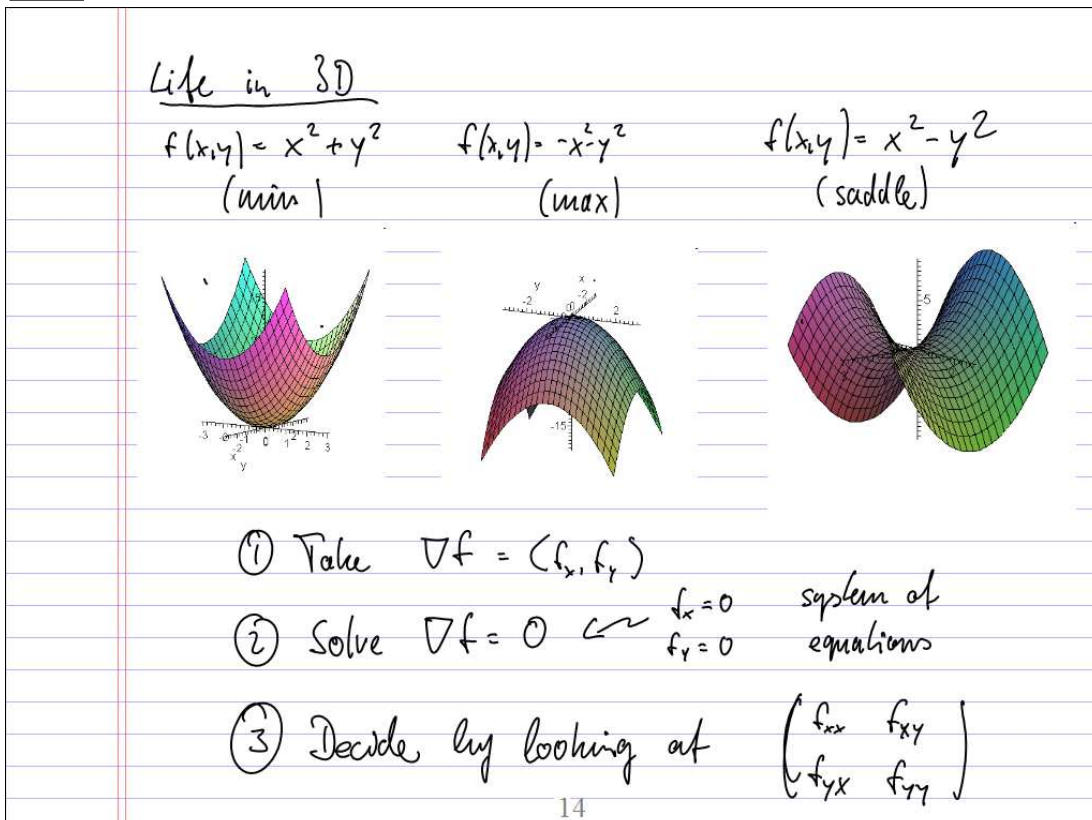 Life in 3D
f(x,y) = x² + y²
(min)
f(x,y) = -x²-y²
(max)
f(x,y) = x² - y²
(saddle)
-3 -2 -1 0 1 2 3
x
y
x
y
-2
-2
0
2
-15
5
① Take ∇f = (fₓ, f_y)
② Solve ∇f = 0 ← fₓ = 0 system of
f_y = 0 equations
③ Decide by looking at ( f_xx f_xy
f_yx f_yy )
14